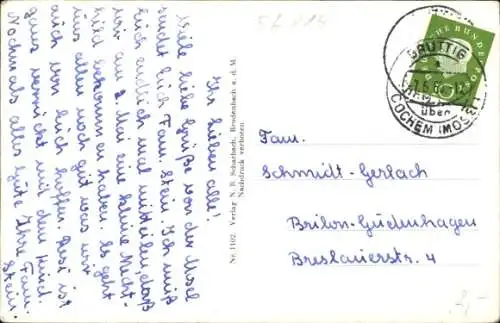 Ihr lieben alle!
Viele liebe Grüße von der Mosel
sendet Euch Fam. Stein. Ich muß
Euch endlich mal mitteilen, daß
wir am 2. Mai eine kleine
bekommen haben. Es geht
uns allen noch gut was wir
auch von Euch hoffen. Rosi ist
ganz vernickt mit dem Kind.
Nochmals alles Gute Ihre Fam.
Stein.
Nr. 1102. Verlag N. B. Scharbach, Brodenbach a. d. M.
Nachdruck verboten
DEUTSCHE BUNDESPOST
BRUTTIG
über
COCHEM (MOSEL)
Fam.
Schmidt-Gerlach
Brilon-Gudenhagen
Breslauerstr. 4